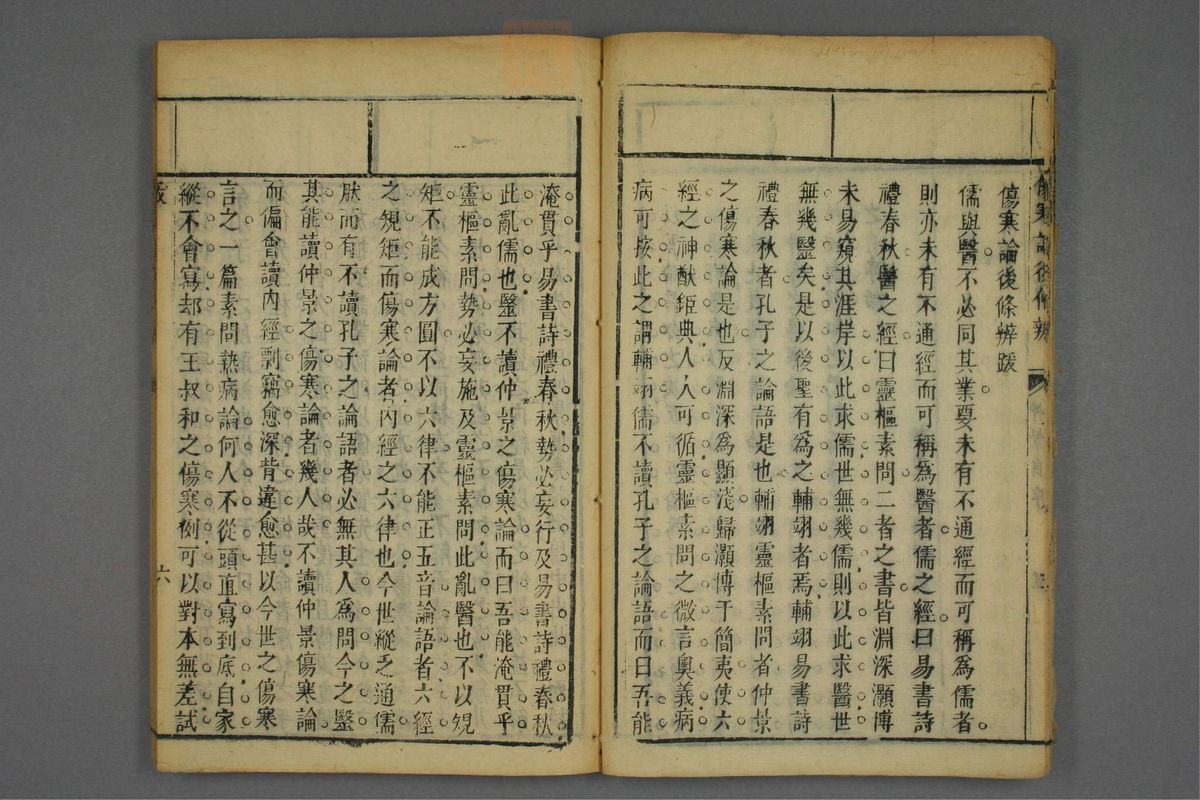 傷寒論後條辨
傷寒論後條辨跋
儒與醫不必同其業要未有不通經而可稱為儒者
則亦未有不通經而可稱為醫者儒之經曰易書詩
禮春秋醫之經曰靈樞素問二者之書皆淵深灝博
未易窺其涯岸以此求儒世無幾儒則以此求醫世
無幾醫矣是以後聖有為之輔翊者焉輔翊易書詩
禮春秋者孔子之論語是也輔翊靈樞素問者仲景
之傷寒論是也反淵深為顯淺歸灝博于簡夷使六
經之神猷鉅典人人可循靈樞素問之微言奧義病
病可按此之謂輔翊儒不讀孔子之論語而曰吾能
淹貫乎易書詩禮春秋勢必妄行及易書詩禮春秋
此亂儒也醫不讀仲景之傷寒論而曰吾能淹貫乎
靈樞素問勢必妄施及靈樞素問此亂醫也不以規
矩不能成方圓不以六律不能正五音論語者六經
之規矩而傷寒論者內經之六律也今世縱之通儒
猒而有不讀孔子之論語者必無其人為問今之醫
其能讀仲景之傷寒論者幾人哉不讀仲景傷寒論
而偏會讀內經剽竊愈深背違愈甚以今世之傷寒
言之一篇素問熱病論何人不從頭直寫到底自家
縱不會寫却有王叔和之傷寒例可以對本無差試
跋
六